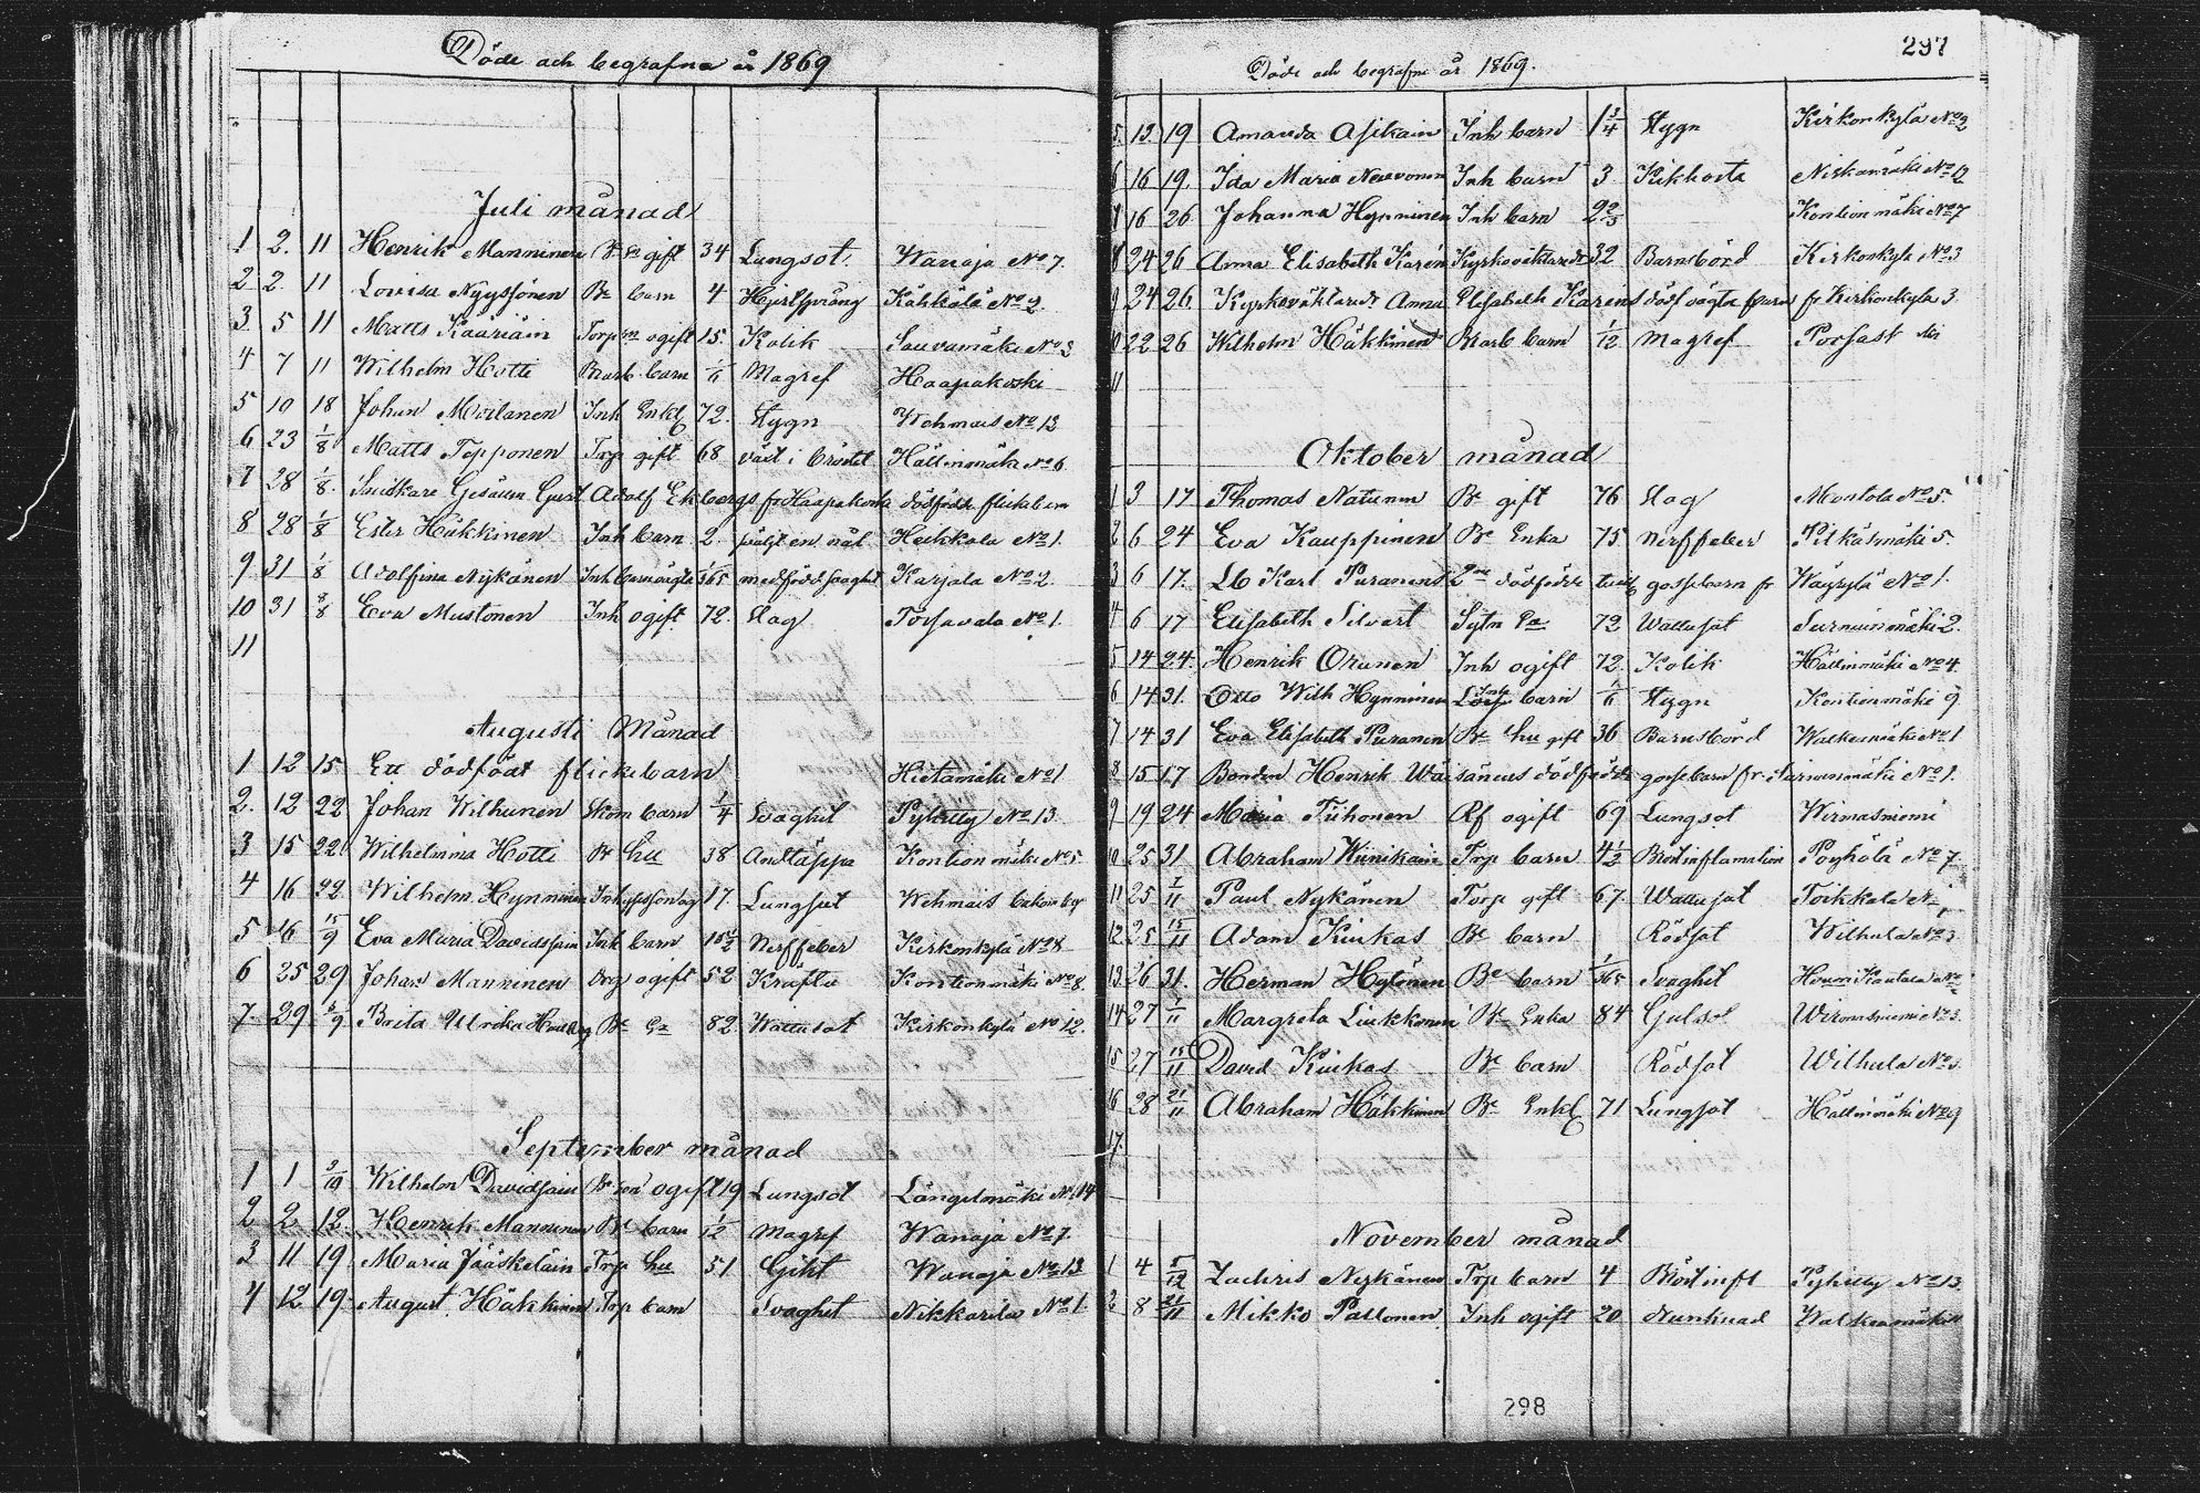 Döde och begrafna år 1869
Juli månad
1 2. 11 Henrik Manninen Bs sn gift 34 Lungsot. Wanaja No 7.
2 2. 11 Lovisa Nyyssönen Be barn 4 Hjertsprång Kähkölä No 2.
3 5 11 Matts Kääriäin Torp sn ogift 15. Kolik Sauvamäki No 3
4 7 11 Wilhelm Hotti Brarb. barn Magref Haapakoski
5 10 18 Johan Moilanen Inh Enkl 72. Stygn Wehmais No 12
6 23 1/8 Matts Tepponen Torp gift 68 värk i bröstet Hällinmäki No 6
7 28 1/8. Snickare Gesällen Gust. Adolf Ekbergs fr Haapakoski dödfödde flickebarn
8 28 1/8 Ester Häkkinen Inh barn 2. en nål Heikkala No 1.
9. 31 1/8 Adolfina Nykänen Inh barn oägta 1/365 medfödd svaghet Karjala No 2.
10 31 8/8 Eva Mustonen Inh ogift 72. Slag Torsavala No 1.
11
Augusti Månad
1 12 15 Ett dödfödt flickebarn Hietamäki No 1
2. 12 22 Johan Wilhunen Skom barn 1/4 Svaghet Pyhitty No 13
3 15 22 Wilhelmina Hotti Br hu 38 Andtäppa Kontionmäki No 5.
4 16 22 Wilhelm. Hynninen Inh 17. Lungsot Wehmais
5 16 15/9 Eva Maria Davidsain Inh barn 15 1/2 Nerffeber Kirkonkylä No 8
6 25 29 Johan Manninen Drg ogift 52 Kräfta Kontionmäki No 8.
7. 29 5/9 Brita Ulrika Be Ea 82. Wattusot Kirkonkylä No 12.
September månad
1 1 3/10 Wilhelm Davidsain Be son ogift 19 Lungsot Längelmäki No 14
2 2 12. Henrik Manninen Be barn 1/12 Magref Wanaja No 7.
3 11 19 Maria Jääskeläin Torp hu 51 Gikt Wanaja No 13
4 12 19. August Häkkinen Torp barn Svaghet Nikkarila No 1.
297
Döde och begrafne år 1869.
5. 13. 19 Amanda Asikain Inh barn 1 3/4 Stygn Kirkonkylä No 2
6 16 19. Ida Maria Nenvonen Inh barn 3 Kikhosta Niskamäki No 12
7 16 26 Johanna Hynninen Inh barn 2 2/3 Kontionmäki No 7
8 24 26 Anna Elisabeth Karén Kyrkoväktarede 32 Barnsbörd Kirkonkylä No 3
9 24 26. Kyrkoväktarede Anna Elisabeth Karéns dödf oägta fr Kirkonkylä 3.
10 22 26 Wilhelm Häkkinen Brarb barn 1/12 Magref Porsask
11
Oktober månad
1 3 17 Thomas Natunen Be gift 76 Slag Montola No 5.
2 6 24 Eva Kauppinen Be Enka 75. Nerffeber Pitkäsmäki 5.
3 6 17. Lb Karl Puranens 2ne dödfödde gossebarn fr Wäyrylä No 1.
4 6 17 Elisabeth Silvast Sytn Ea 72 Wattusot Surnuinmäki 2.
5 14 24. Henrik Orunen Inh ogift 72. Kolik Hällinmäki No 4.
6 14 31. Otto Wilh Hynninen Inh barn 1/6 Stygn Kontionmäki 9.
7 14 31 Eva Elisabeth Puranen Be hu gift 36 Barnsbörd Walkeamäki No 1
8 15 17 Bonden Henrik Wäisänens dödfödde gossebarn fr. Surnuinmäki No 1.
9 19 24 Maria Tiihonen Rf ogift 69 Lungsot Wirmasniemi
10 25 31 Abraham Wiinikain Torp barn 4 1/2 Bröstinflamation Pöyhölä No 7
11 25 7/11 Paul Nykänen Torp gift 67. Wattusot Toikkala No 1
12 25 15/11 Adam Kiukas Be barn Rödsot Wilhula No 3
13 26 31. Herman Hytönen Be barn 1/365 Svaghet
14 27 7/11 Margreta Liukkonen Be Enka 84 Gulsot Wirmasniemi No 3.
15 27 15/11 David Kiukas Be barn Rödsot Wilhula No 3.
16 28 21/11 Abraham Häkkinen Be Enkl 71 Lungsot Hällinmäki No 9
17.
November månad
1 4 5/12 Zachris Nykänen Torp barn 4 Bröstinfl Pyhitty No 13
2 8 21/11 Mikko Pallonen Inh ogift 20 drunknad Walkeamäki
298